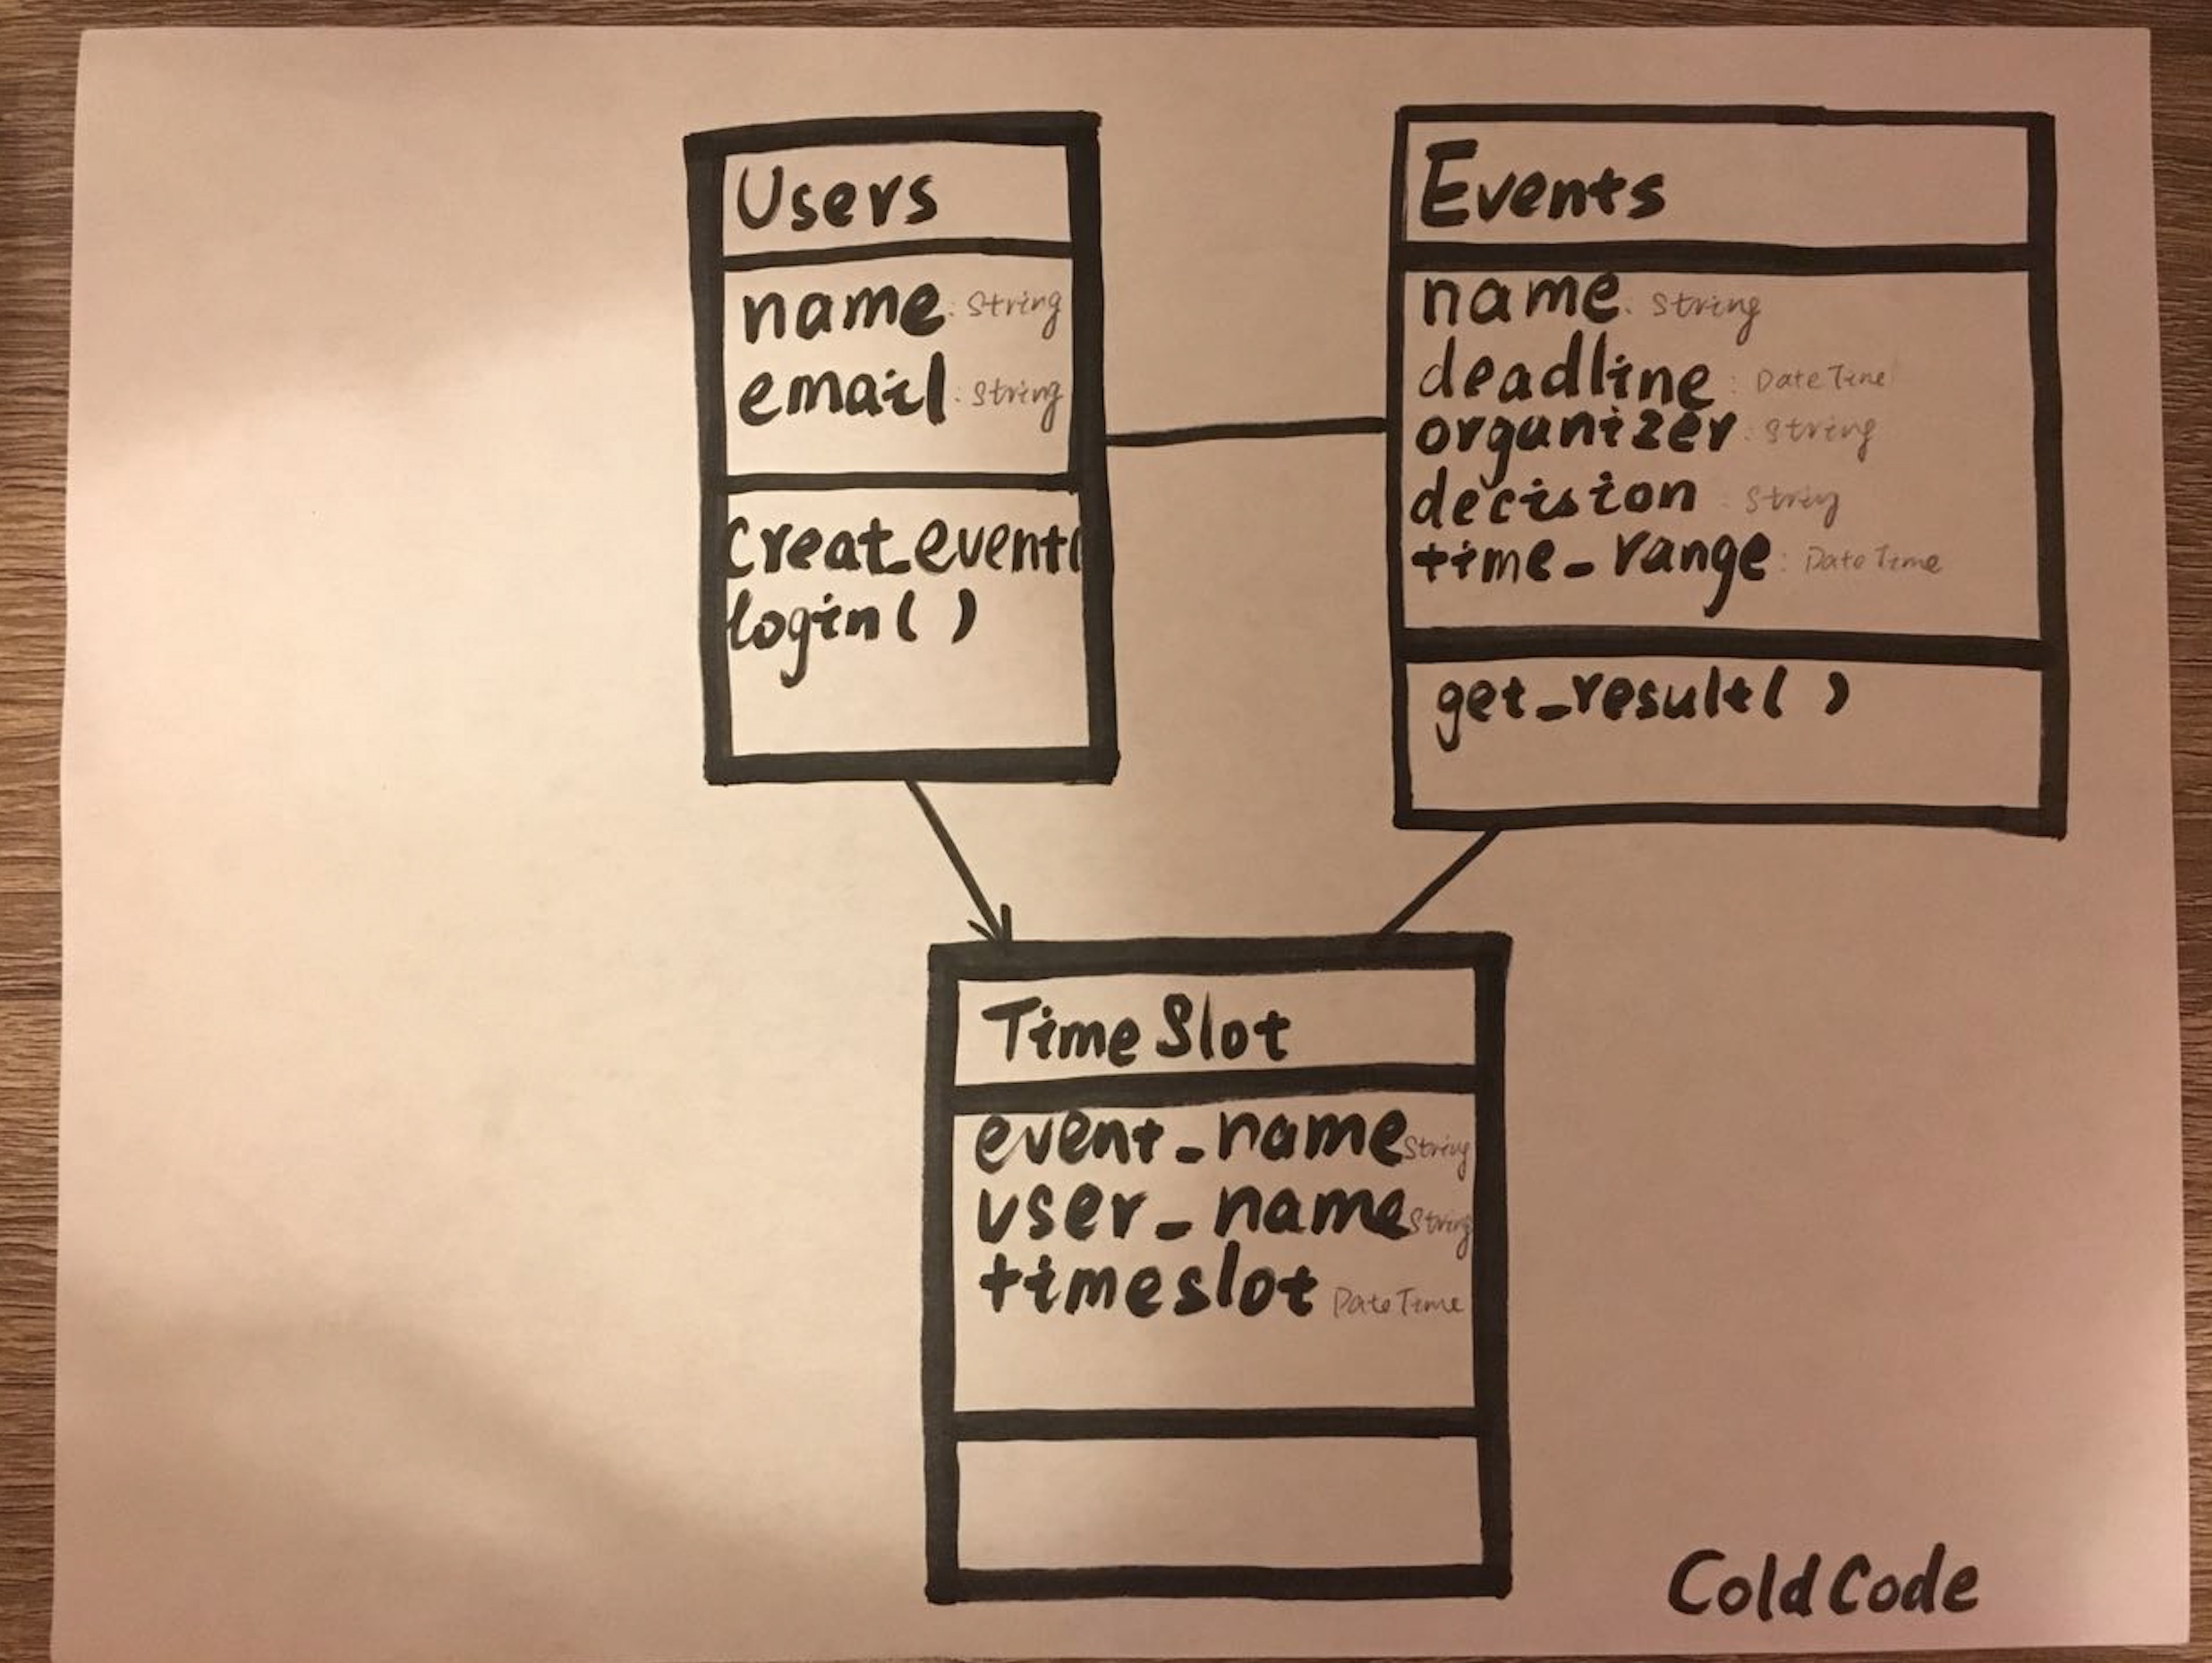 Users
name: String
email: String
creat_event(
login( )
Events
name: String
deadline: DateTime
organizer: String
decision: String
time_range: DateTime
get_result( )
TimeSlot
event_name String
user_name String
timeslot DateTime
ColdCode